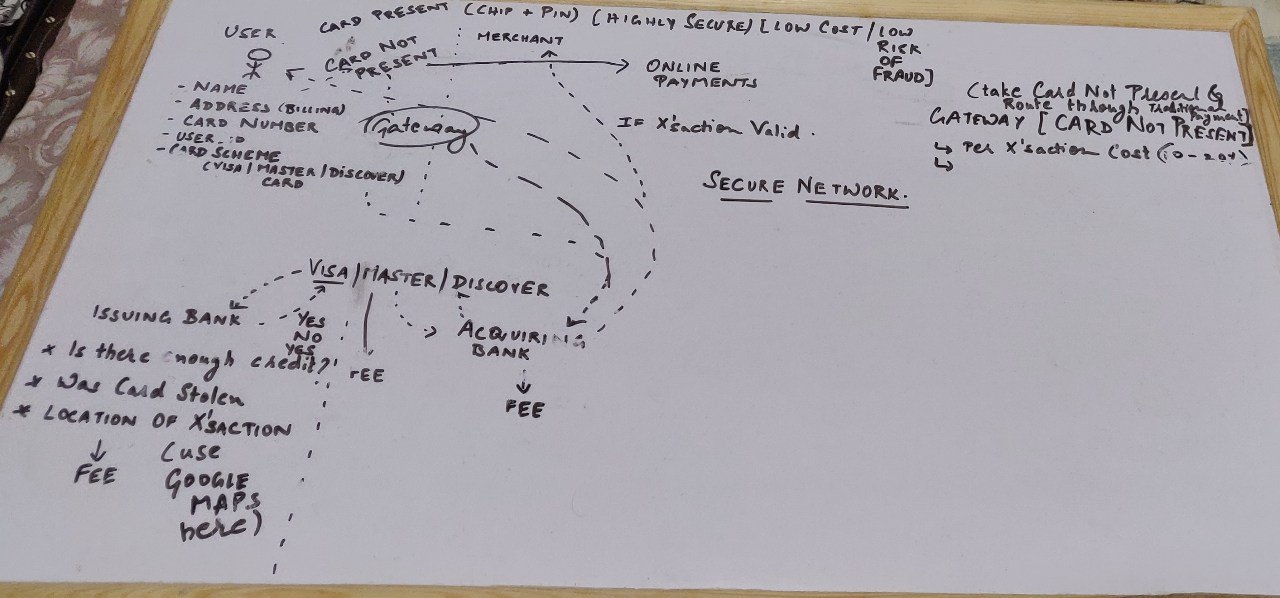 CARD PRESENT (CHIP + PIN) (HIGHLY SECURE) [LOW COST/LOW
RISK
OF
FRAUD]
USER
MERCHANT
CARD NOT
PRESENT
ONLINE
PAYMENTS
- NAME
- ADDRESS (BILLING)
- CARD NUMBER
- USER ID
- CARD SCHEME
(VISA / MASTER / DISCOVER)
CARD
Gateway
IF X'saction Valid.
(take Card Not Present &
Route through Traditional
Payment]
GATEWAY [CARD NOT PRESENT]
↳ Per X'saction Cost (10-20%)
↳
SECURE NETWORK.
VISA/MASTER/DISCOVER
ISSUING BANK
YES
NO
YES
ACQUIRING
BANK
FEE
FEE
* Is there enough credit?
* Was Card Stolen
* LOCATION OF X'SACTION
↓
FEE
(use
GOOGLE
MAPS
here)